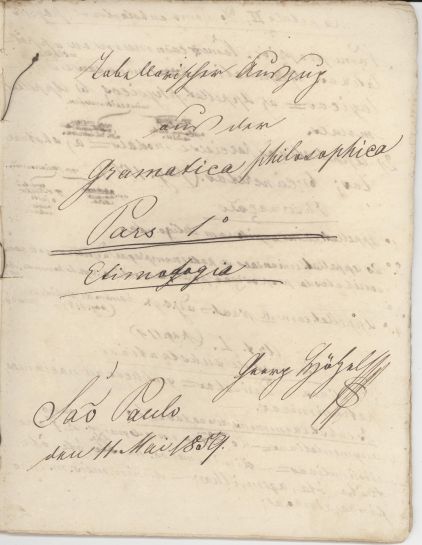 Tabellarischer Auszug
aus der
Gramatica philosophica
Pars 1º
Etimogogia
Georg
São Paulo
den 11. Mai 1859.